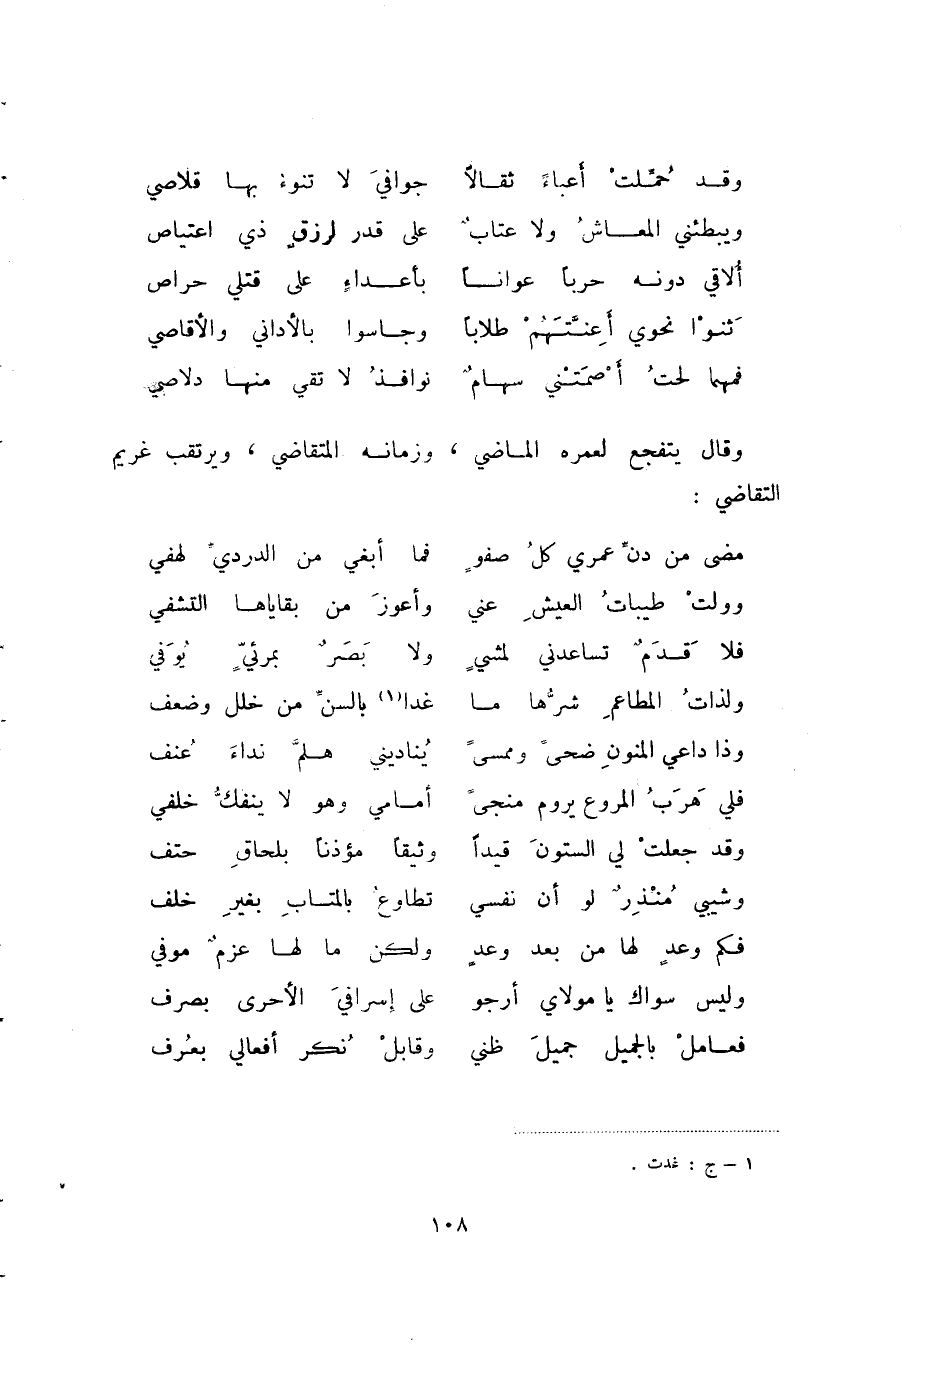 وقد حُمِّلتْ أعباءً ثقالاً جوافيَ لا تنوءُ بها قلاصي
ويبطئني المعاشُ ولا عتابٌ على قدر لرزقٍ ذي اعتياص
أُلاقي دونه حرباً عواناً بأعداءٍ على قتلي حراص
ثَنوْا نحوي أَعِنَّتَهُمْ طلاباً وجاسوا بالأداني والأقاصي
فمهما لحتُ أَصْمَتْني سهامٌ نوافذُ لا تقي منها دلاصي
وقال يتفجع لعمره الماضي ، وزمانه المتقاضي ، ويرتقب غريم
التقاضي :
مضى من دنِّ عمري كلُ صفوٍ فما أبغي من الدرديِّ لهفي
وولتْ طيباتُ العيشِ عني وأعوزَ من بقاياها التشفي
فلا قَدَمٌ تساعدني لمشيٍ ولا بَصَرٌ بمرئيٍّ يُوَفي
ولذاتُ المطاعمِ شرُّها ما غدا(١) بالسنِّ من خلل وضعف
وذا داعي المنونِ ضحىً وممسىً يُناديني هلمَّ نداءَ عُنف
فلي هَرَبُ المروع يروم منجىً أمامي وهو لا ينفكُّ خلفي
وقد جعلتْ لي الستونَ قيداً وثيقاً مؤذناً بلحاقِ حتف
وشيبي مُنْذِرٌ لو أن نفسي تطاوعُ بالمتابِ بغيرِ خلف
فكم وعدٍ لها من بعد وعدٍ ولكن ما لها عزمٌ موفي
وليس سواك يا مولاي أرجو على إسرافيَ الأحرى بصرف
فعاملْ بالجميل جميلَ ظني وقابلْ نُكر أفعالي بعُرف
١ – ج : غدت .
١٠٨